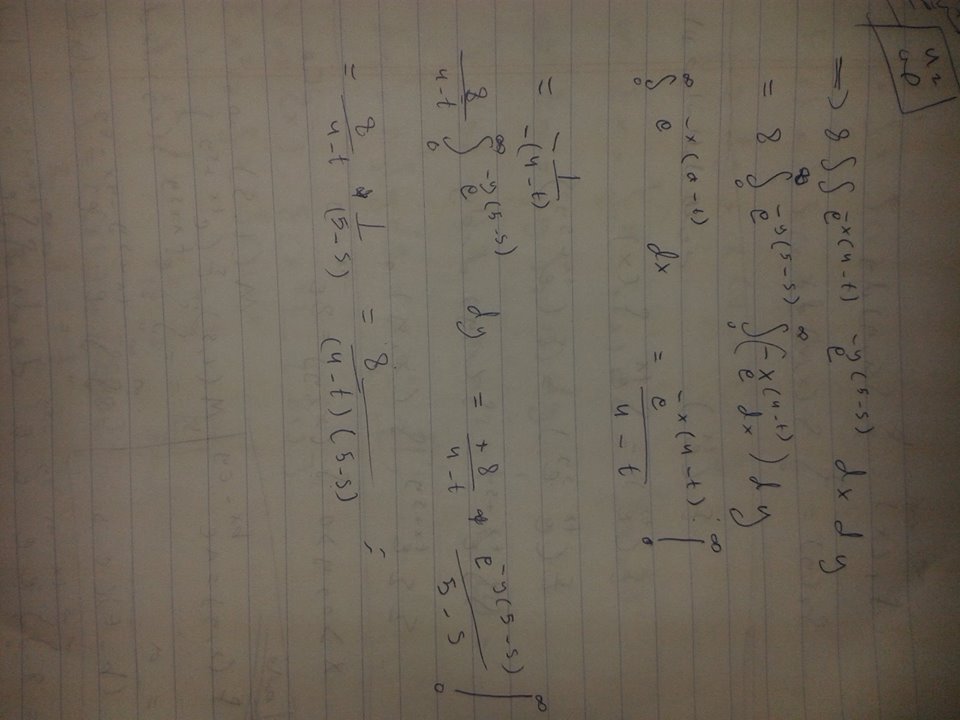 => 8 ∫∫ e^{-x(4-t)} e^{-y(5-s)} dx dy
= 8 ∫_0^∞ e^{-y(5-s)} ∫_0^∞ (e^{-x(4-t)} dx) dy
∫_0^∞ e^{-x(4-t)} dx = e^{-x(4-t)} / (4-t) |_0^∞
= -1 / -(4-t)
8/(4-t) ∫_0^∞ e^{-y(5-s)} dy = +8/(4-t) * e^{-y(5-s)} / (5-s) |_0^∞
= 8/(4-t) * 1/(5-s) = 8 / (4-t)(5-s) =